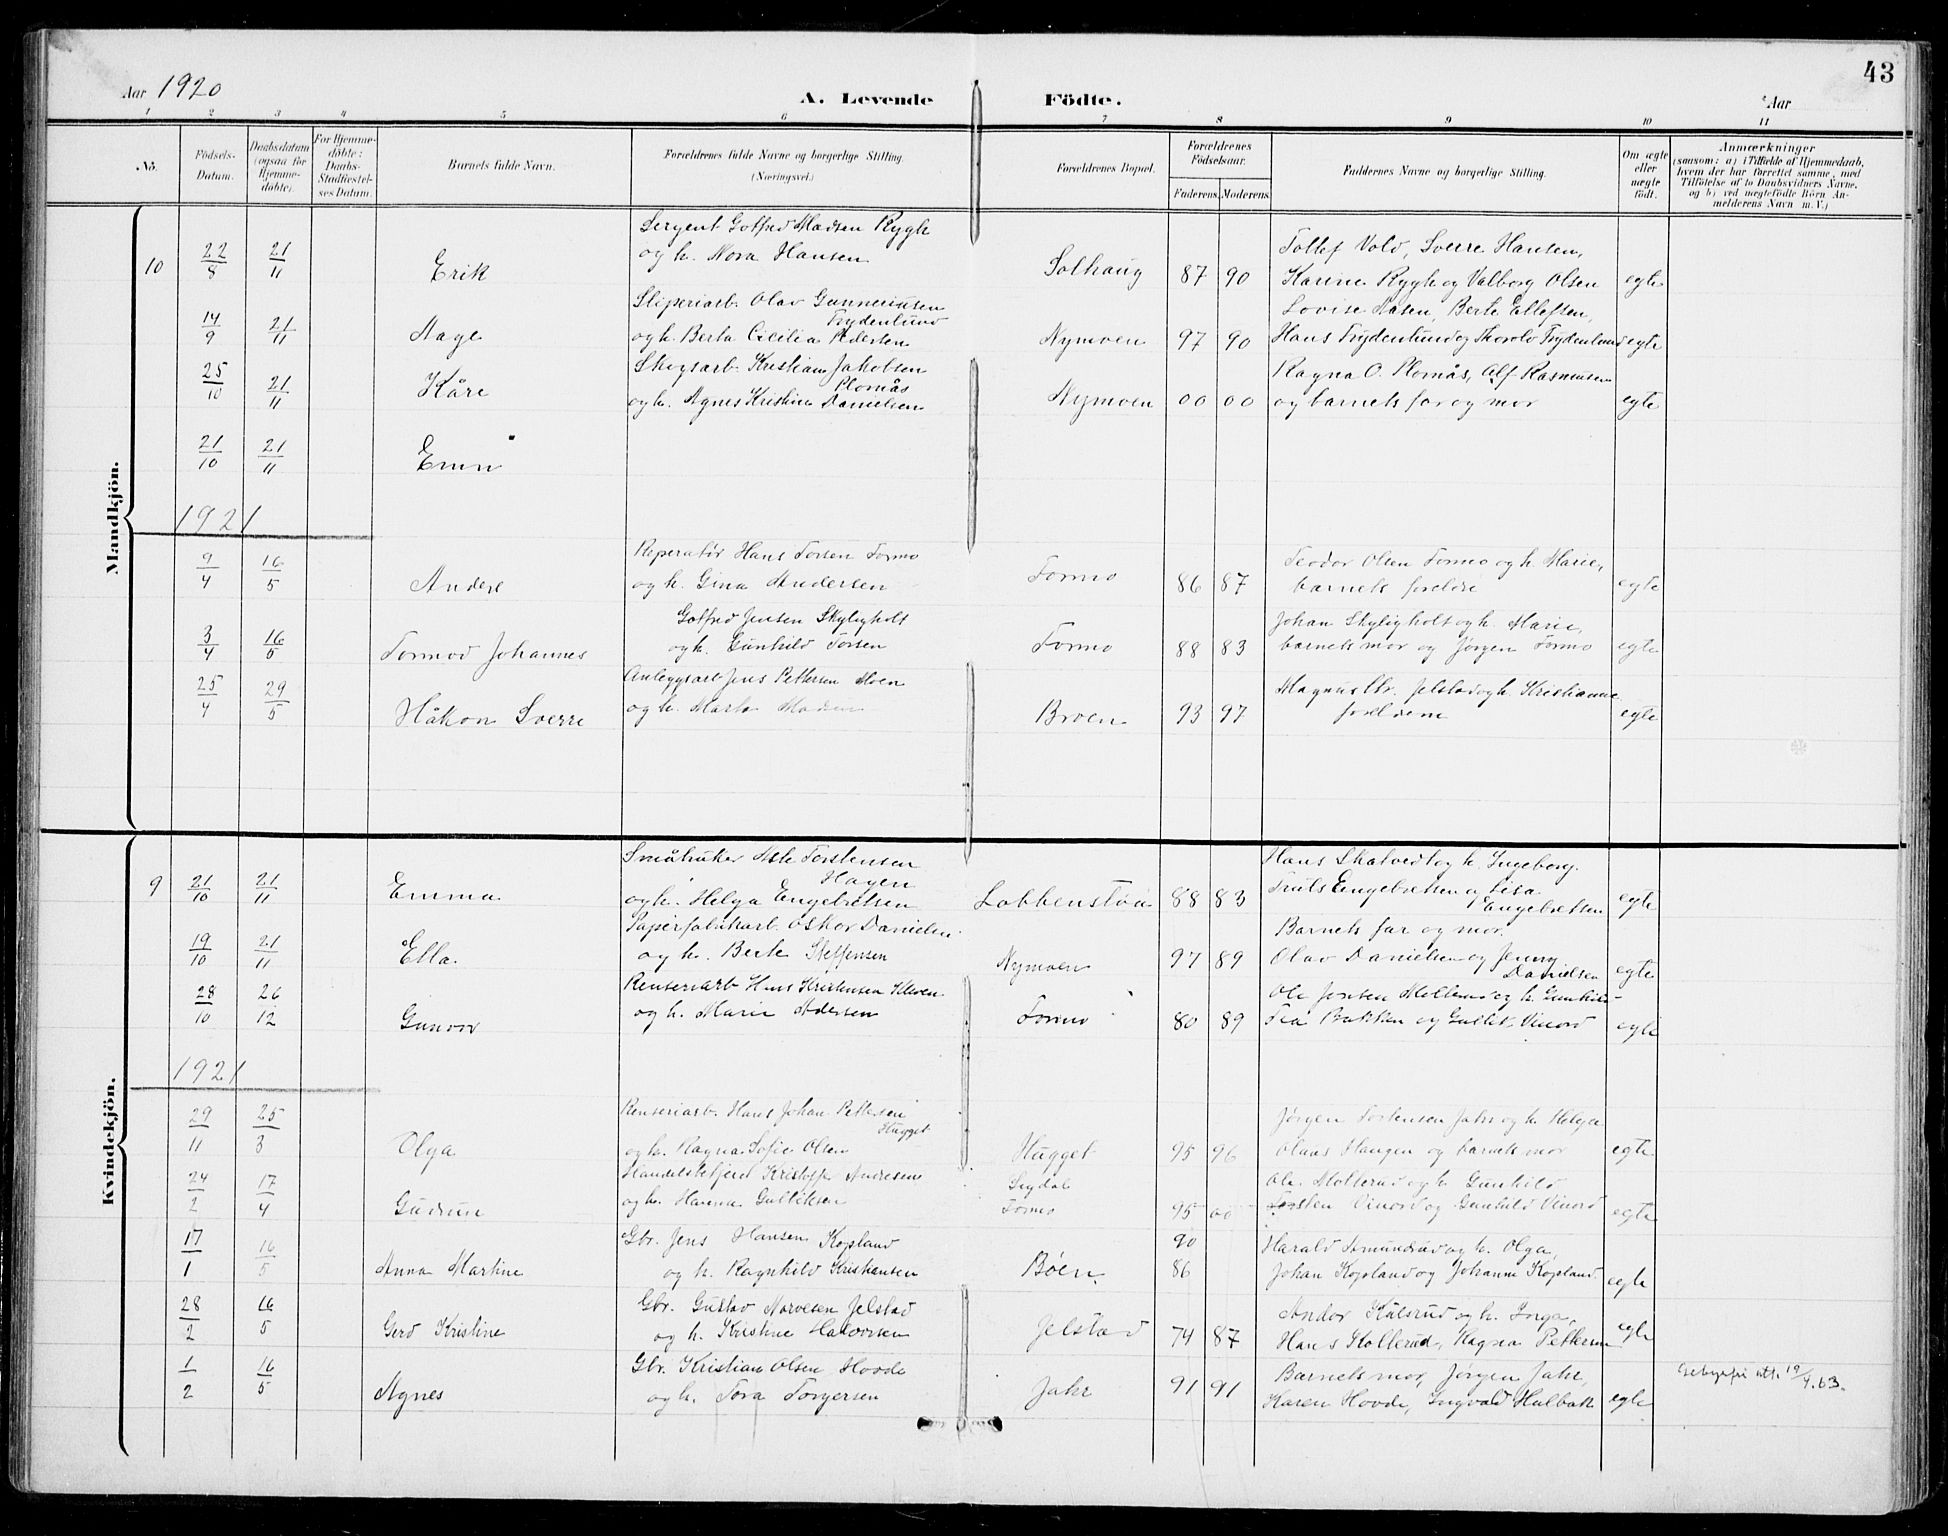 Aar 1920
A. Levende Födte.
Aar
43
1 2 3 4 5 6 7 8 9 10 11
No.
Födsels-Datum.
Daabsdatum (ogsaa for Hjemme-döbte).
For Hjemme-döbte: Daabs-Stadfæstel-ses Datum.
Barnets fulde Navn.
Forældrenes fulde Navne og borgerlige Stilling. (Næringsvei.)
Forældrenes Bopæl.
Forældrenes Födselsaar.
Faderens. Moderens.
Faddernes Navne og borgerlige Stilling.
Om ægte eller uægte födt.
Anmærkninger
(saasom: a) i Tilfælde af Hjemmedaab, hvem der har forrettet samme, med Tilföielse af to Daabsvidners Navne, og b) ved uegtefödte Börn An-melderens Navn m. V.)
Mandkjön.
Sergent Gotfred Madsen Rygh
Tollef Vold, Sverre Hansen,
10 22/8 21/11 Erik og h. Nora Hansen Solhaug 87 90 Karine Rygh og Valborg Olsen egte
Sliperiarb. Olav Gunneriusen Frydenlund
Lovise Aasen, Berte Ellefsen,
14/9 21/11 Aage og h. Berta Cecilia Pedersen Nymoen 97 90 Hans Frydenlund og Thorolv Frydenlund egte
Skogsarb. Kristian Jakobsen Plomås
Ragna O. Plomås, Alf Rasmussen
25/10 21/11 Kåre og h. Agnes Kristine Danielsen Nymoen 00 00 og barnets far og mor egte
21/10 21/11
1921
Reperatør Hans Torsen Formo
Teodor Olsen Formo og h. Marie,
9/4 16/5 Anders og h. Gina Andersen Formo 86 87 barnets foreldre egte
Gotfred Jensen Skyligholt
Johan Skyligholt og h. Marie,
3/4 16/5 Tormod Johannes og h. Gunhild Torsen Formo 88 83 barnets mor og Jørgen Formo egte
Anleggsarb. Jens Pettersen Moen
Magnus Jelstad og h. Kristianne
25/4 29/5 Håkon Sverre og h. Marta Madsen Broen 93 97 foreldrene egte
Kvindekjön.
Småbruker Torstensen Hagen
Hans Skatvedt og h. Ingeborg.
9 21/10 21/11 Emma og h. Helga Engebretsen Lobbenstøa 88 83 Truls Engebretsen og Lisa Engebretsen egte
Papirfabrikarb. Oskar Danielsen
Barnets far og mor,
19/10 21/11 Ella. og h. Berte Steffensen Nymoen 97 89 Olav Danielsen og Jenny Danielsen egte
Renseriarb. Hans Kristensen
Ole Jensen Mollerud og h. Gunhild
28/10 26/12 Gunvor og h. Marie Andersen Formo 80 89 Tea Bakken og Gullik Vinord egte
1921
Renseriarb. Hans Johan Pettersen Hugget
Jørgen Torstensen Jahr og h. Helga
29/11 25/3 Olga og h. Ragna Sofie Olsen Hugget 95 96 Olaus Haugen og barnets mor egte
Handelsbetjent Kristoffer Andresen Sigdal
Ole Mollerud og h. Gunhild
24/2 17/4 Gudrun og h. Hanna Gulliksen Formo 95 00 Torsten Vinord og Gunhild Vinord egte
Gbr. Jens Hansen Kopland 90
Harald Amundsrud og h. Olga,
17/1 16/5 Anna Martine og h. Ragnhild Kristiansen Bøen 86 Johan Kopland og Johanne Kopland. egte
Gbr. Gustav Narvesen Jelstad
Andor Kulsrud og h. Inga,
28/2 16/5 Gerd Kristine og h. Kristine Halvorsen Jelstad 74 87 Hans Kollerud, Ragna Pettersen egte
Gbr. Kristian Olsen Hovde
Barnets mor, Jørgen Jahr,
1/2 16/5 Agnes og h. Tora Torgersen Jahr 91 91 Karen Hovde, Ingvald Hulbak egte
att. 19/4.63.